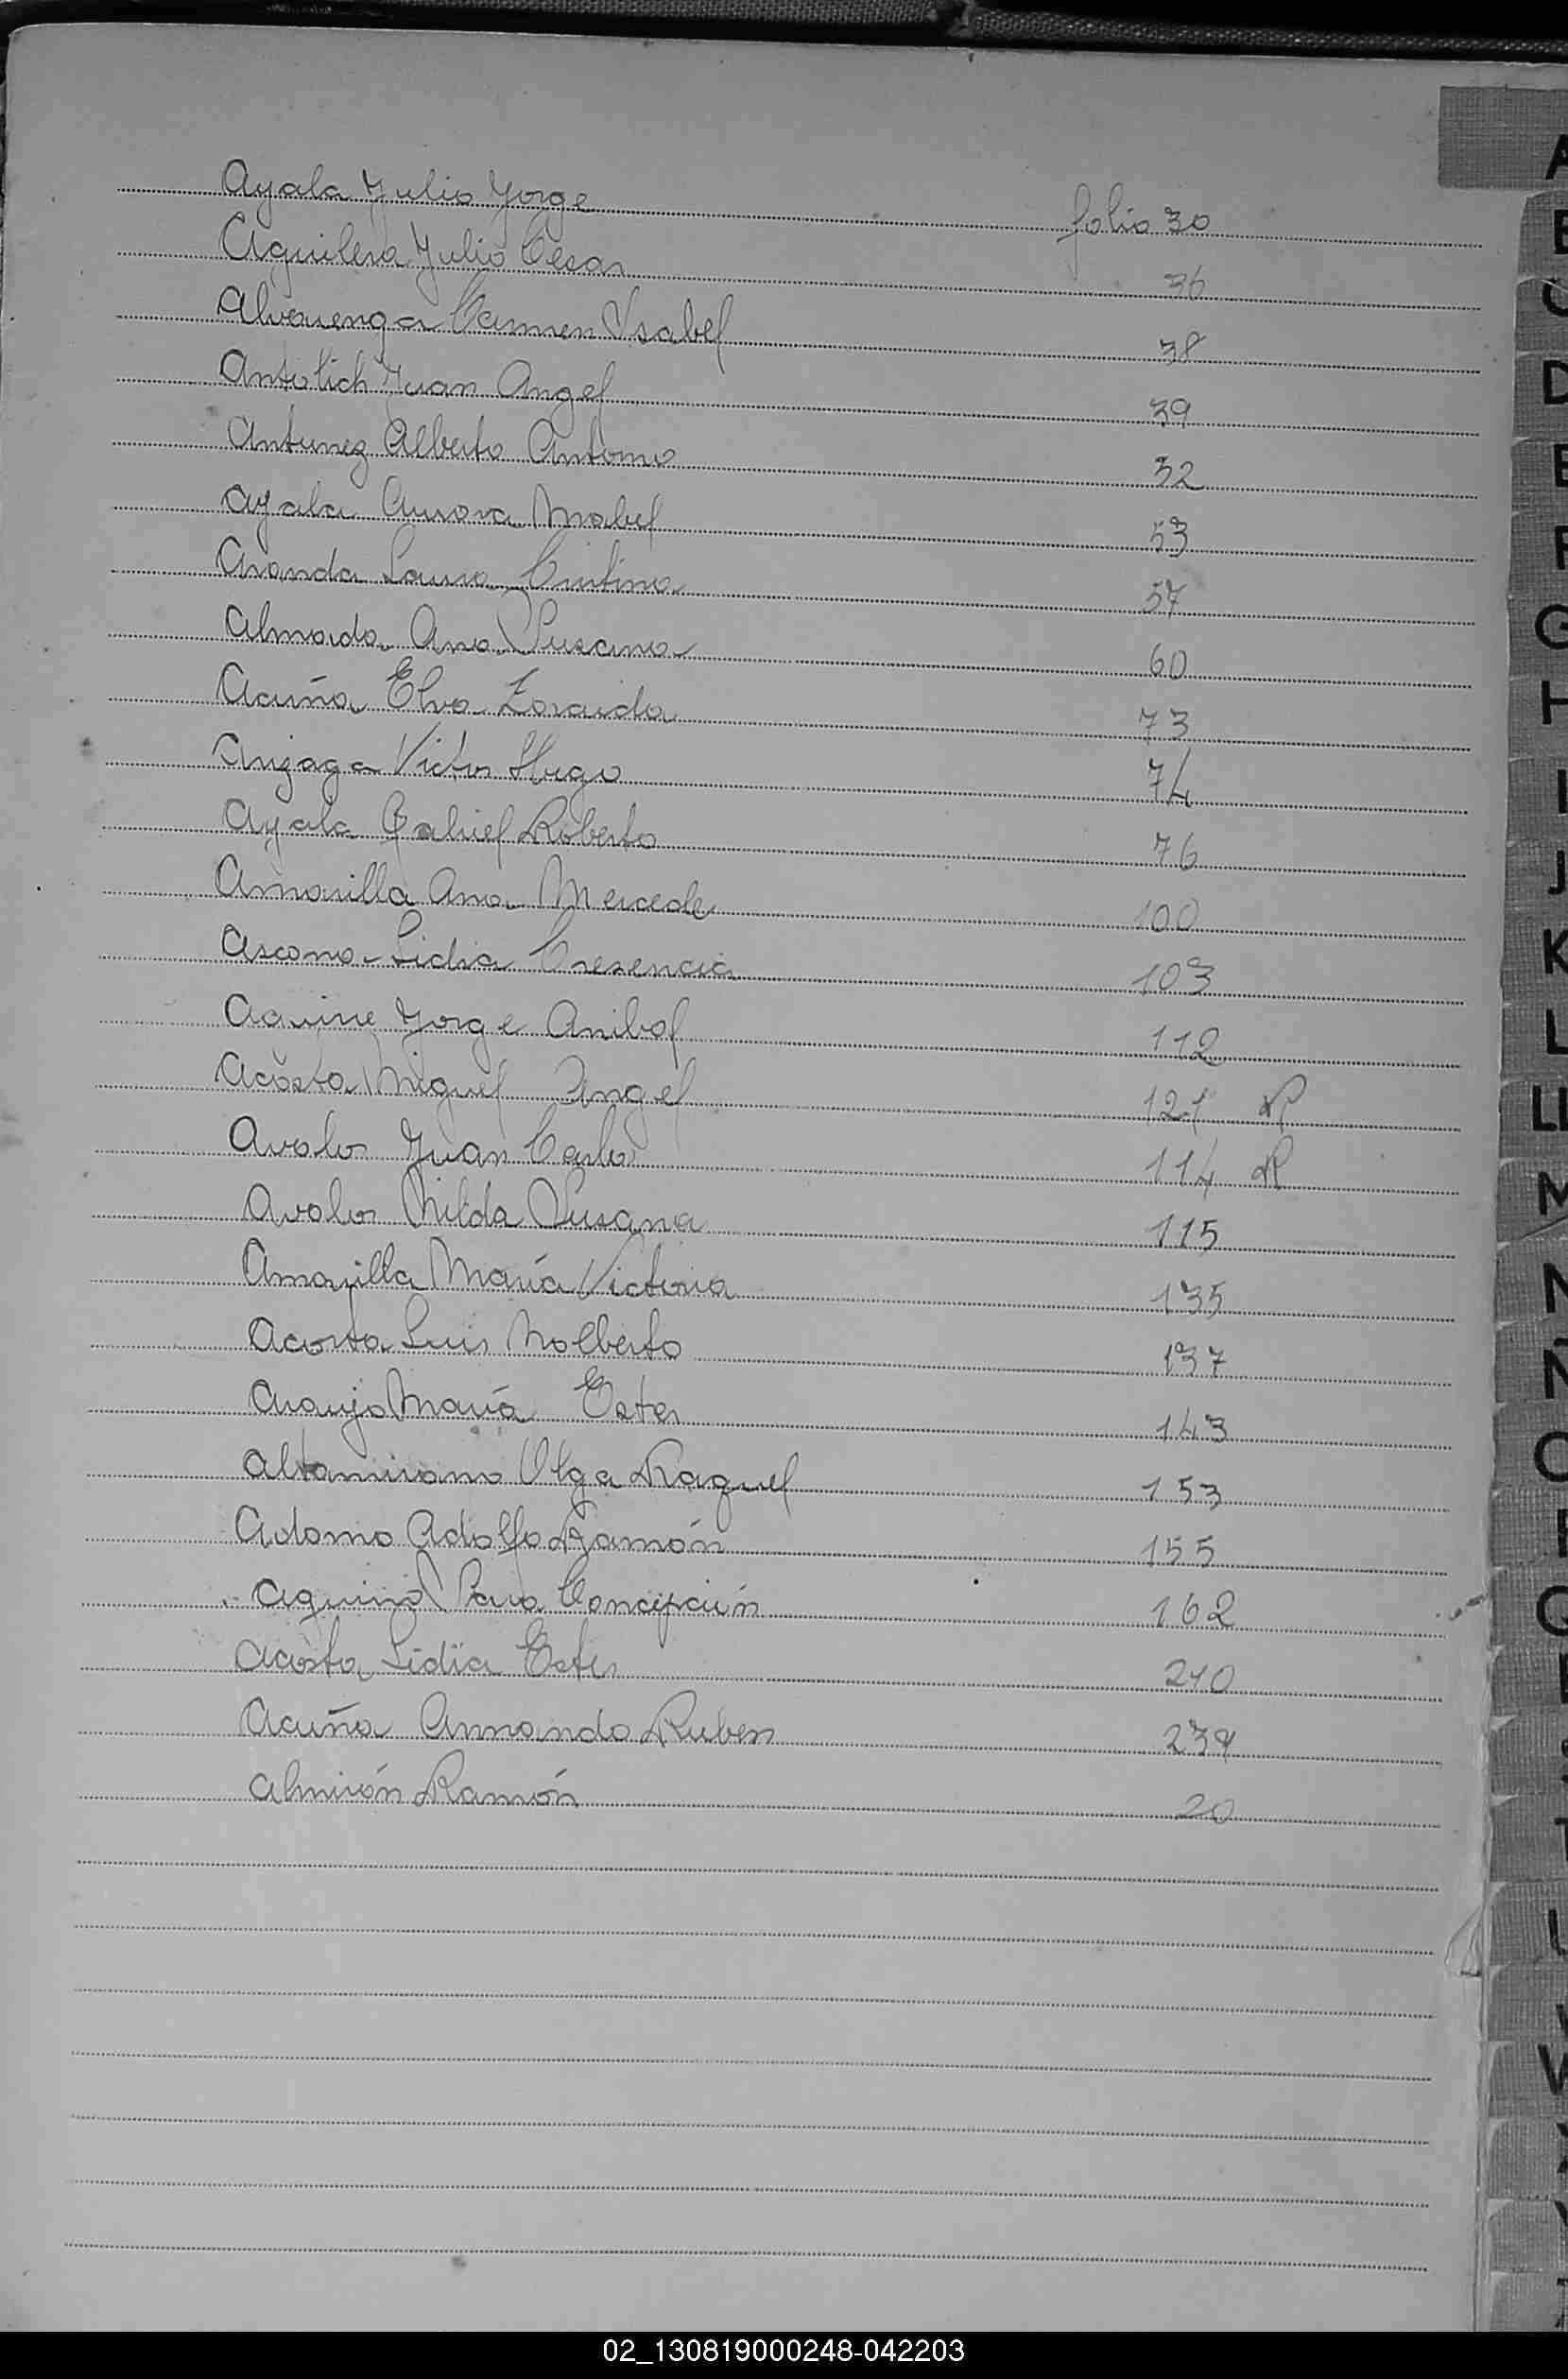 Ayala Julio Jorge folio 30
Aguilera Julio Cesar 36
Alvarenga Carmen Ysabel 38
Antolich Juan Angel 39
Antunez Alberto Antonio 52
Ayala Aurora Mabel 53
Aranda Laura Cristina 57
Almada Ana Susana 60
Acuña Elva Zoraida 73
Arizaga Victor Hugo 74
Ayala Gabriel Roberto 76
Amarilla Ana Mercede 100
Ascona Lidia Cresencia 103
Aquine Jorge Anibal 112
Acosta Miguel Angel 121
Avalos Juan Carlos 114 R
Avalos Nilda Susana 115
Amarilla María Victoria 135
Acosta Luis Nolberto 137
Araujo María Ester 143
Altamirano Olga Raquel 153
Adorno Adolfo Ramón 155
Aquino Sara Concepción 162
Acosta Lidia Ester 210
Acuña Armando Ruben
Almirón Ramón 20
A
B
C
D
E
F
G
H
I
J
K
L
LL
M
N
Ñ
O
P
Q
02_130819000248-042203